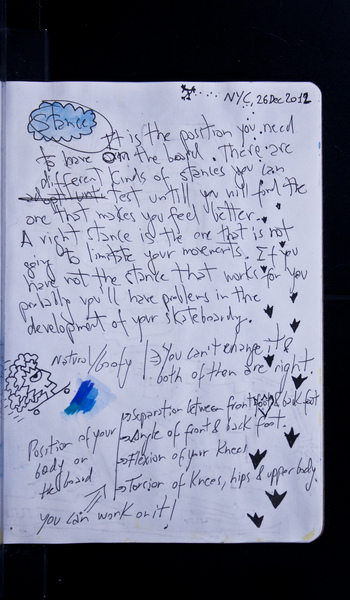 NYC, 26 Dec 2012
Stance
It is the position you need
to have on the board. There are
different kinds of stances you can
test untill you will find the
one that makes you feel better.
A right stance is the one that is not
going to limitate your movements. If you
have not the stance that works for you
probably you'll have problems in the
development of your skateboardig.
Natural/Goofy
You can't change it &
both of then are right.
Position of your
body on
the board
Separation between front foot & back foot
Angle of front & back foot.
Flexion of your Knees
Torsion of Knees, hips & upper body.
You can work on it!